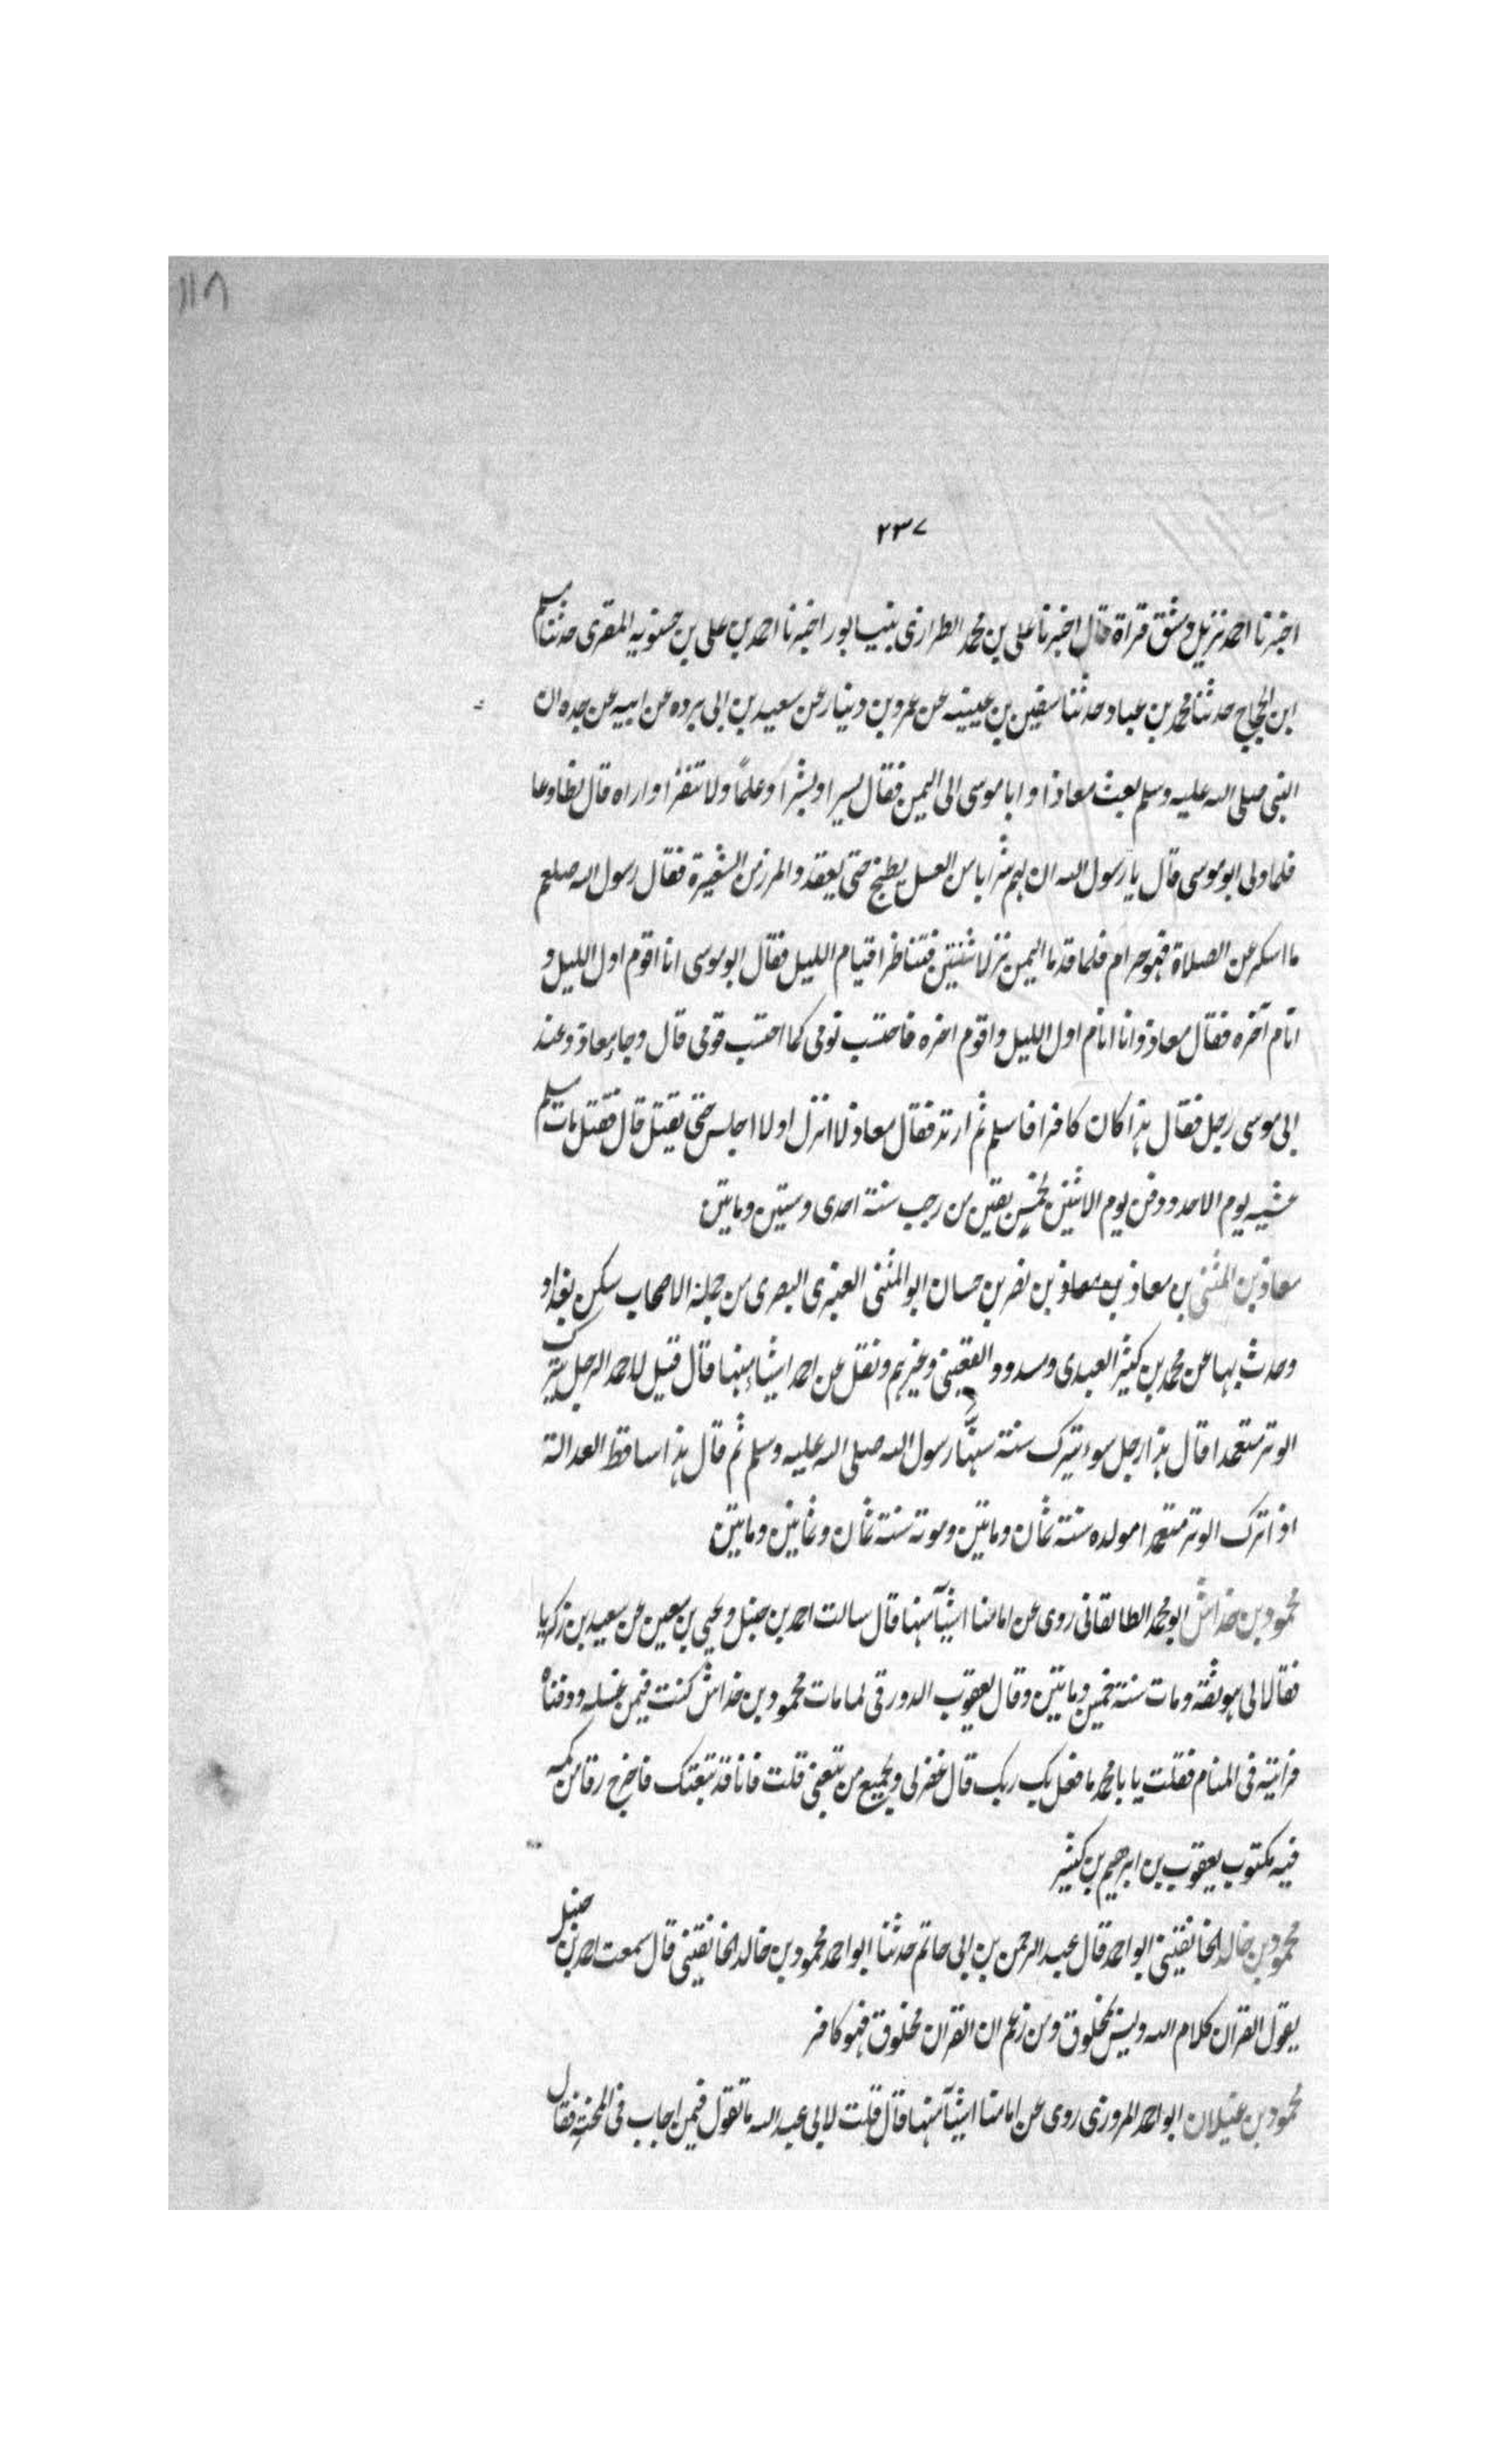 ١١٨
٢٣٧
اخبرنا احمد نزيل دمشق قراة قال اخبرنا علي بن محمد الطرازي بنيسابور اخبرنا احمد بن علي بن حسنويه المقرى حدثنا مسلم
ابن الحجاج حدثنا محمد بن عباد حدثنا سفين بن عيينه عن عمرو بن دينار عن سعيد بن ابي برده عن ابيه عن جده ان
النبي صلى الله عليه وسلم بعث معاذا و ابا موسى الى اليمن فقال يسرا وبشرا وعلما ولا تنفرا واراه قال تطاوعا
فلما ولى ابو موسى قال يا رسول الله ان لهم شرابا من العسل يطبخ حتى يعقد والمرز من الشعيرة فقال رسول الله صلعم
ما اسكر عن الصلاة فهو حرام فلما قدما اليمن نزلا شنتين فتناظرا قيام الليل فقال ابو موسى انا اقوم اول الليل و
انام آخره فقال معاذ وانا انام اول الليل واقوم اخره فاحتسب نومى كما احتسب قومى قال وجا معاذ وعند
ابي موسى رجل فقال هذا كان كافرا فاسلم ثم ارتد فقال معاذ لا انزل او لا اجلس حتى يقتل قال فقتل مات مسلم
عشيه يوم الاحد ودفن يوم الاثنين لخمس بقين من رجب سنة احدى وستين ومايتين
معاذ بن المثنى بن معاذ بن معاذ بن نصر بن حسان ابو المثنى العنبرى البصرى من جملة الاصحاب سكن بغداد
وحدث بها عن محمد بن كثير العبدى ومسدد والقعنبى وغيرهم ونقل عن احمد اشيا منها قال قيل لاحمد الرجل يترك
الوتر متعمدا قال هذا رجل سوء يترك سنة سنها رسول الله صلى الله عليه وسلم ثم قال هذا ساقط العدالة
اذا ترك الوتر متعمدا مولده سنة ثمان ومايتين وموته سنة ثمان وثمانين ومايتين
محمود بن خداش ابو محمد الطالقانى روى عن امامنا اشيآ منها قال سالت احمد بن حنبل ويحيى بن معين عن سعيد بن زكريا
فقالا لى هو ثقة ومات سنة خمسين ومايتين وقال يعقوب الدورقى لما مات محمود بن خداش كنت فيمن غسله ودفناه
فرايته فى المنام فقلت يا با محمد ما فعل بك ربك قال غفر لى ولجميع من تبعنى قلت فانا قد تبعتك فاخرج رقا من كمه
فيه مكتوب يعقوب بن ابرهيم بن كثير
محمود بن خالد الخانقينى ابو احمد قال عبد الرحمن بن ابى حاتم حدثنا ابو احمد محمود بن خالد الخانقينى قال سمعت احمد بن حنبل
يقول القران كلام الله وليس بمخلوق ومن زعم ان القران مخلوق فهو كافر
محمود بن غيلان ابو احمد المروزى روى عن امامنا اشيآ منها قال قلت لابى عبد الله ما تقول فيمن اجاب فى المحنة فقال